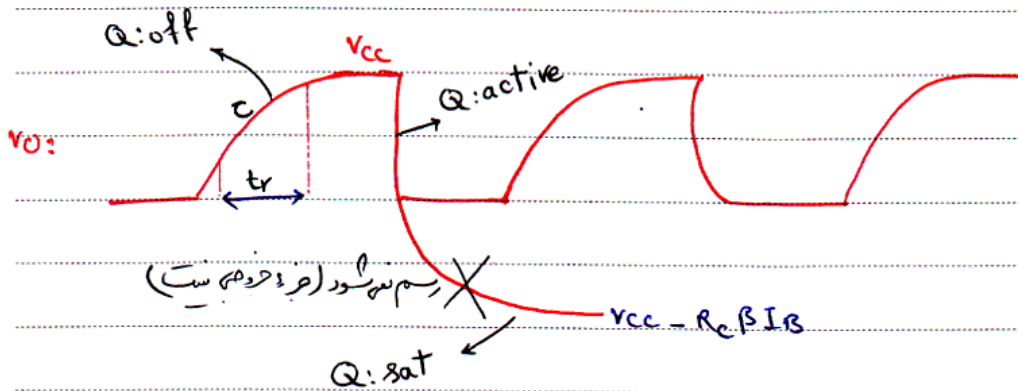 Q: off
Vcc
Q: active
τ
vo:
tr
رسم نمی‌شود (جزء خروجی نیست)
Vcc - Rc β IB
Q: sat